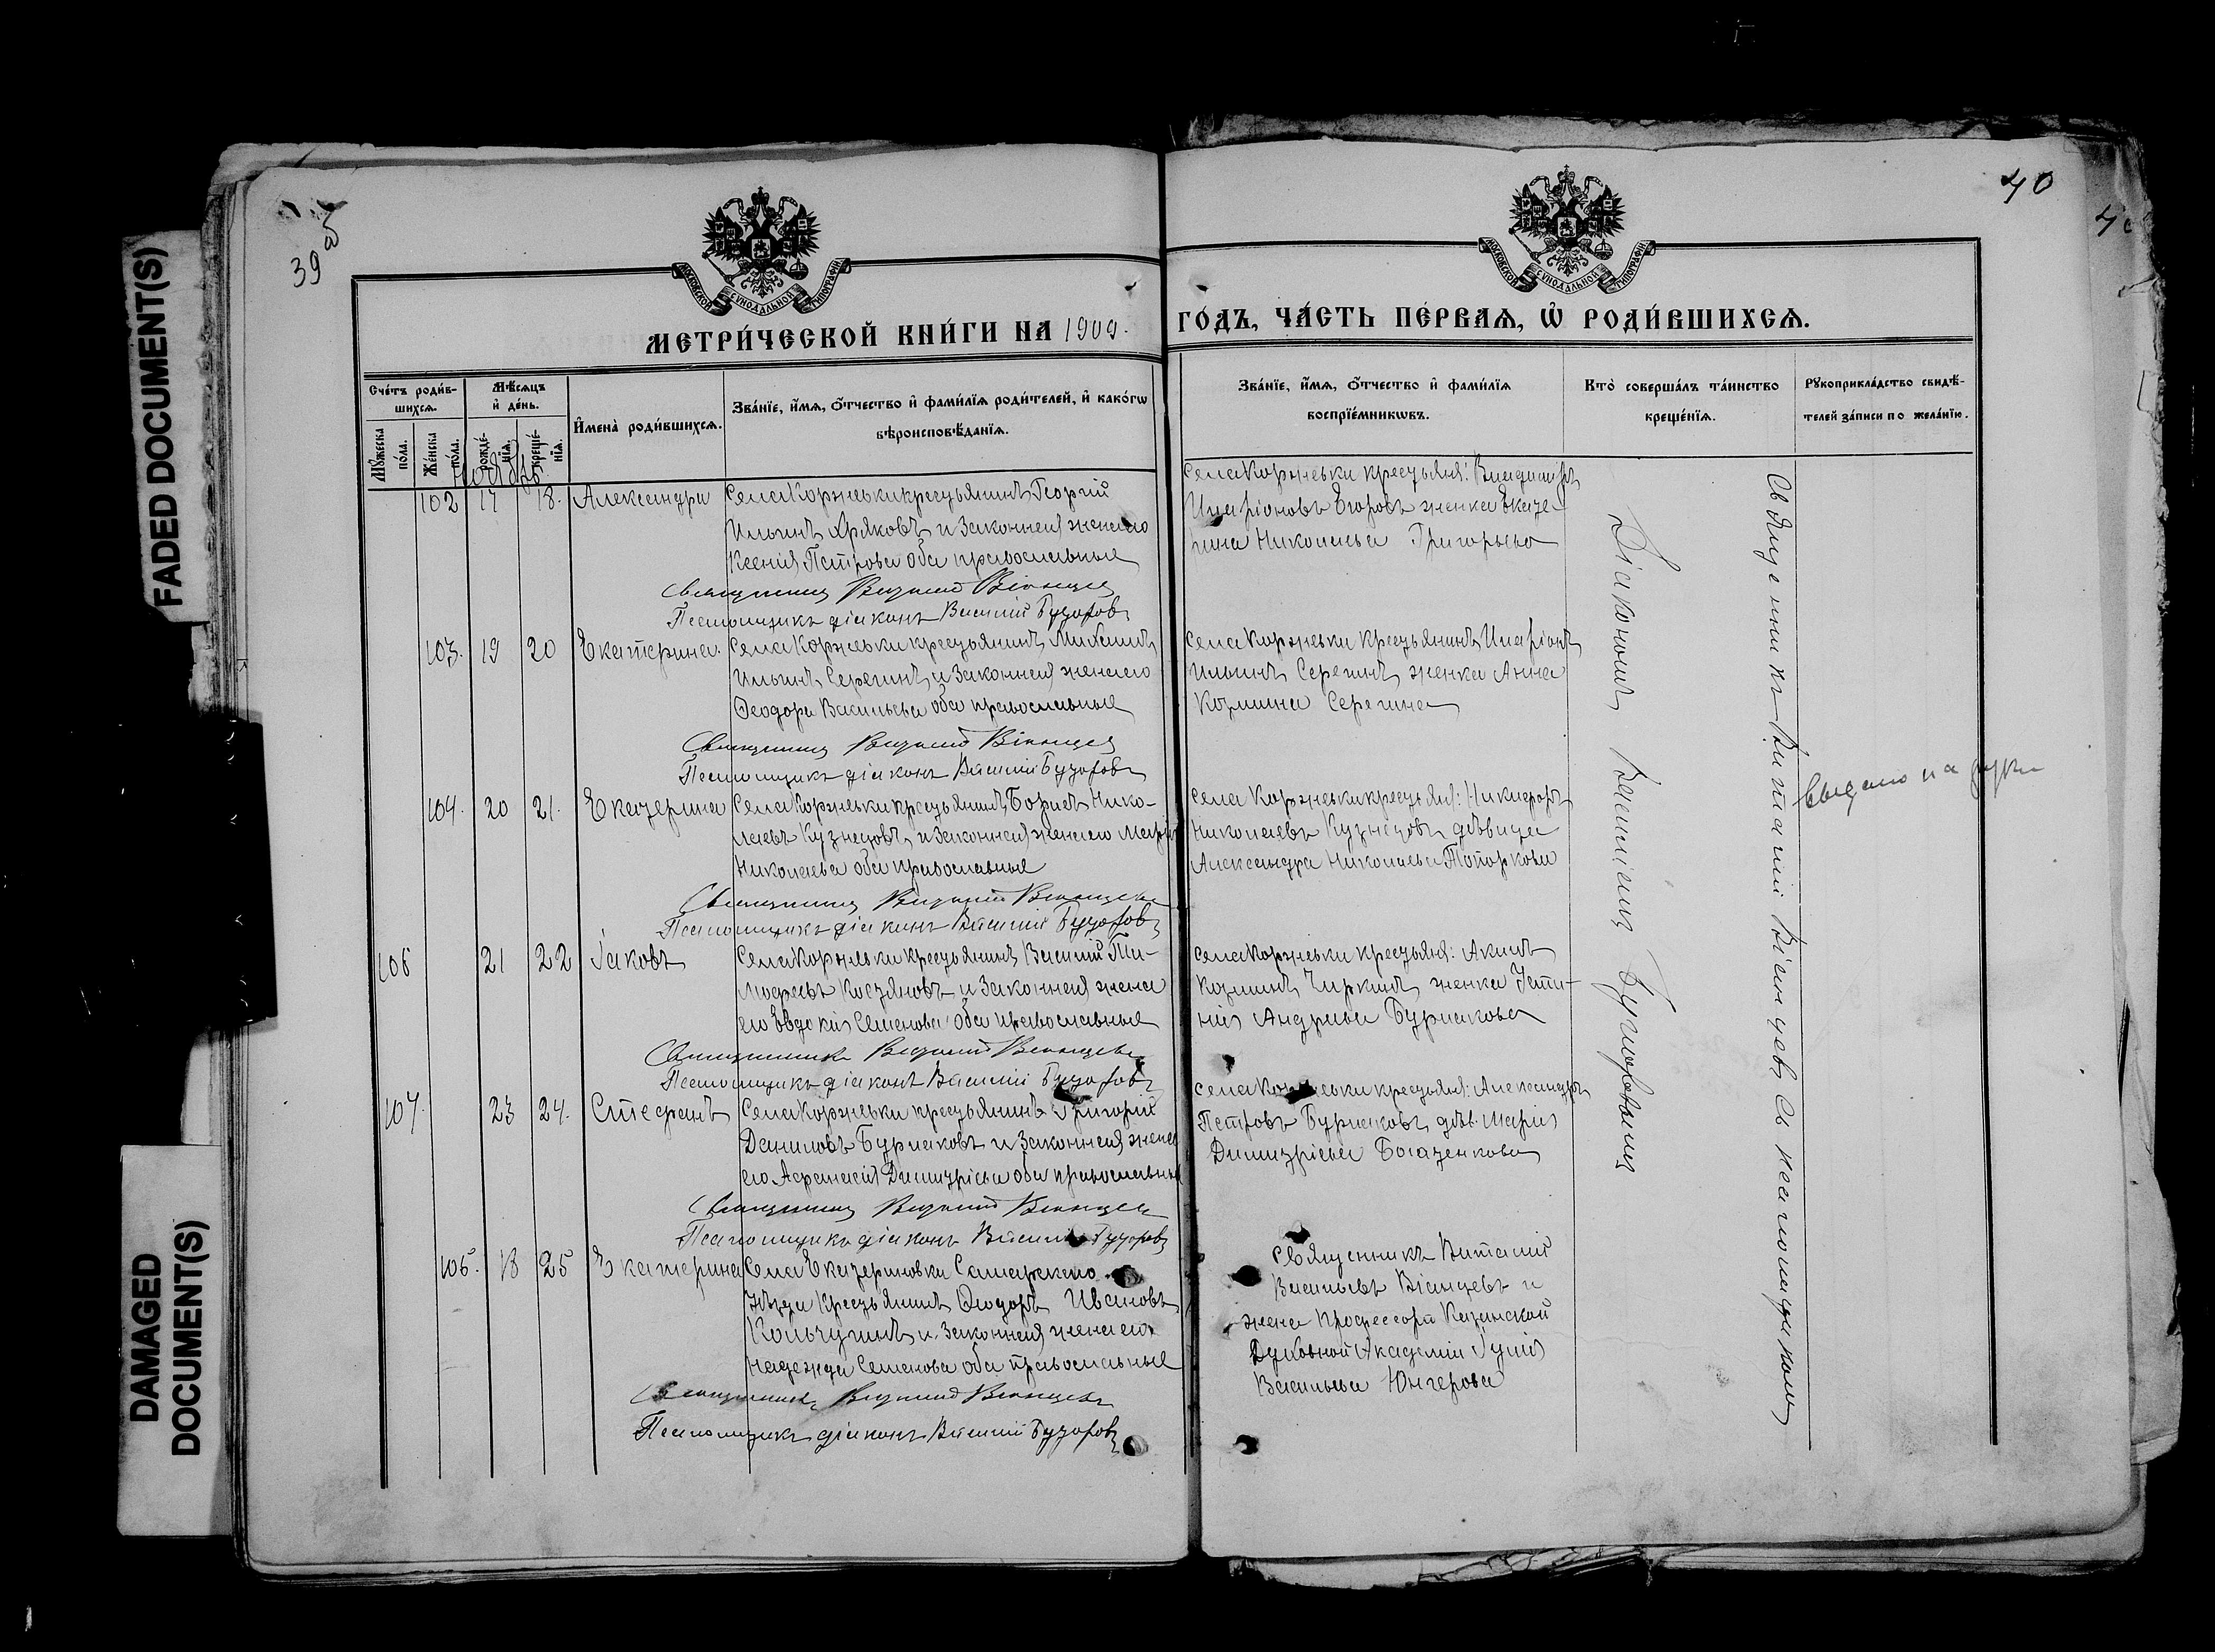 FADED DOCUMENT(S)
DAMAGED
DOCUMENT(S)
39 об
40
МОСКОВСКОЙ СѴНОДАЛЬНОЙ ТИПОГРАФІИ
МОСКОВСКОЙ СѴНОДАЛЬНОЙ ТИПОГРАФІИ
МЕТРИ́ЧЕСКОЙ КНИ́ГИ НА 1909.
ГО́ДЪ, ЧА́СТЬ ПЕ́РВАѦ, Ѡ҆ РОДИ́ВШИХСѦ.
Сче́тъ роди́в-
шихсѧ.
Мѣ́сѧцъ
и҆ де́нь.
Мꙋ́жеска
по́ла.
Же́нска
по́ла.
рожде́-
нїѧ.
креще́-
нїѧ.
И҆мена̀ роди́вшихсѧ.
Зва́нїе, и҆́мѧ, ѻ҆́тчество и҆ фами́лїѧ роди́телей, и҆ како́гѡ
вѣроисповѣ́данїѧ.
Зва́нїе, и҆́мѧ, ѻ҆́тчество и҆ фами́лїѧ
воспрїе́мникѡвъ.
Кто̀ соверша́лъ та́инство
креще́нїѧ.
Рꙋкоприкла́дство свидѣ́-
телей за́писи по жела́нїю.
Ноябрь
102 17 18. Александра Села Коржевки крестьянинъ Георгій
Ильинъ Хряковъ и законная жена его
Ксенія Петрова оба православные
Священникъ Виталій Віанцевъ
Псаломщикъ діаконъ Василій Бугоровъ
Села Коржевки крестьян: Владиміръ
Иларіоновъ Егоровъ женка Екате-
рина Николаева Григорьева
103. 19 20 Екатерина. Села Коржевки крестьянинъ Михаилъ
Ильинъ Серегинъ и законная жена его
Ѳеодора Васильева оба православные
Священникъ Виталій Віанцевъ
Псаломщикъ діаконъ Василій Бугоровъ
Села Коржевки крестьянинъ Иларіонъ
Ильинъ Серегинъ женка Анна
Козмина Серегина
104. 20 21. Екатерина Села Коржевки крестьянинъ Борисъ Нико-
лаевъ Кузнецовъ и законная жена его Марія
Николаева оба православные
Священникъ Виталій Віанцевъ
Псаломщикъ діаконъ Василій Бугоровъ
Села Коржевки крестьян: Никифоръ
Николаевъ Кузнецовъ дѣвица
Александра Николаева Топоркова
106 21 22 Іаковъ Села Коржевки крестьянинъ Василій Ти-
мофеевъ Костяновъ и законная жена
его Евдокія Семенова оба православные
Священникъ Виталій Віанцевъ
Псаломщикъ діаконъ Василій Бугоровъ
Села Коржевки крестьян: Акимъ
Козминъ Чиркинъ женка Усти-
нія Андреева Бурлакова
107. 23 24. Стефанъ Села Коржевки крестьянинъ Григорій
Даниловъ Бурлаковъ и законная жена
его Афанасія Димитріева оба православные
Священникъ Виталій Віанцевъ
Псаломщикъ діаконъ Василій Бугоровъ
Села Коржевки крестьян: Александръ
Петровъ Бурлаковъ дѣв. Марія
Димитріева Богатенкова
105. 18 25 Екатерина Села Екатериновки Самарскаго
уѣзда крестьянинъ Ѳеодоръ Ивановъ
Кольчугинъ и законная жена его
Надежда Семенова оба православные
Священникъ Виталій Віанцевъ
Псаломщикъ діаконъ Василій Бугоровъ
Священникъ Виталій
Васильевъ Віанцевъ и
жена профессора Казанской
Духовной Академіи Юлія
Васильева Юнгерова
Священникъ Виталій Віанцевъ съ псаломщикомъ
Діакономъ Василіемъ Бугоровымъ
выдано на руки